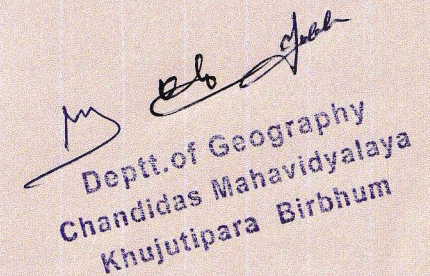 Deptt.of Geography
Chandidas Mahavidyalaya
Khujutipara Birbhum